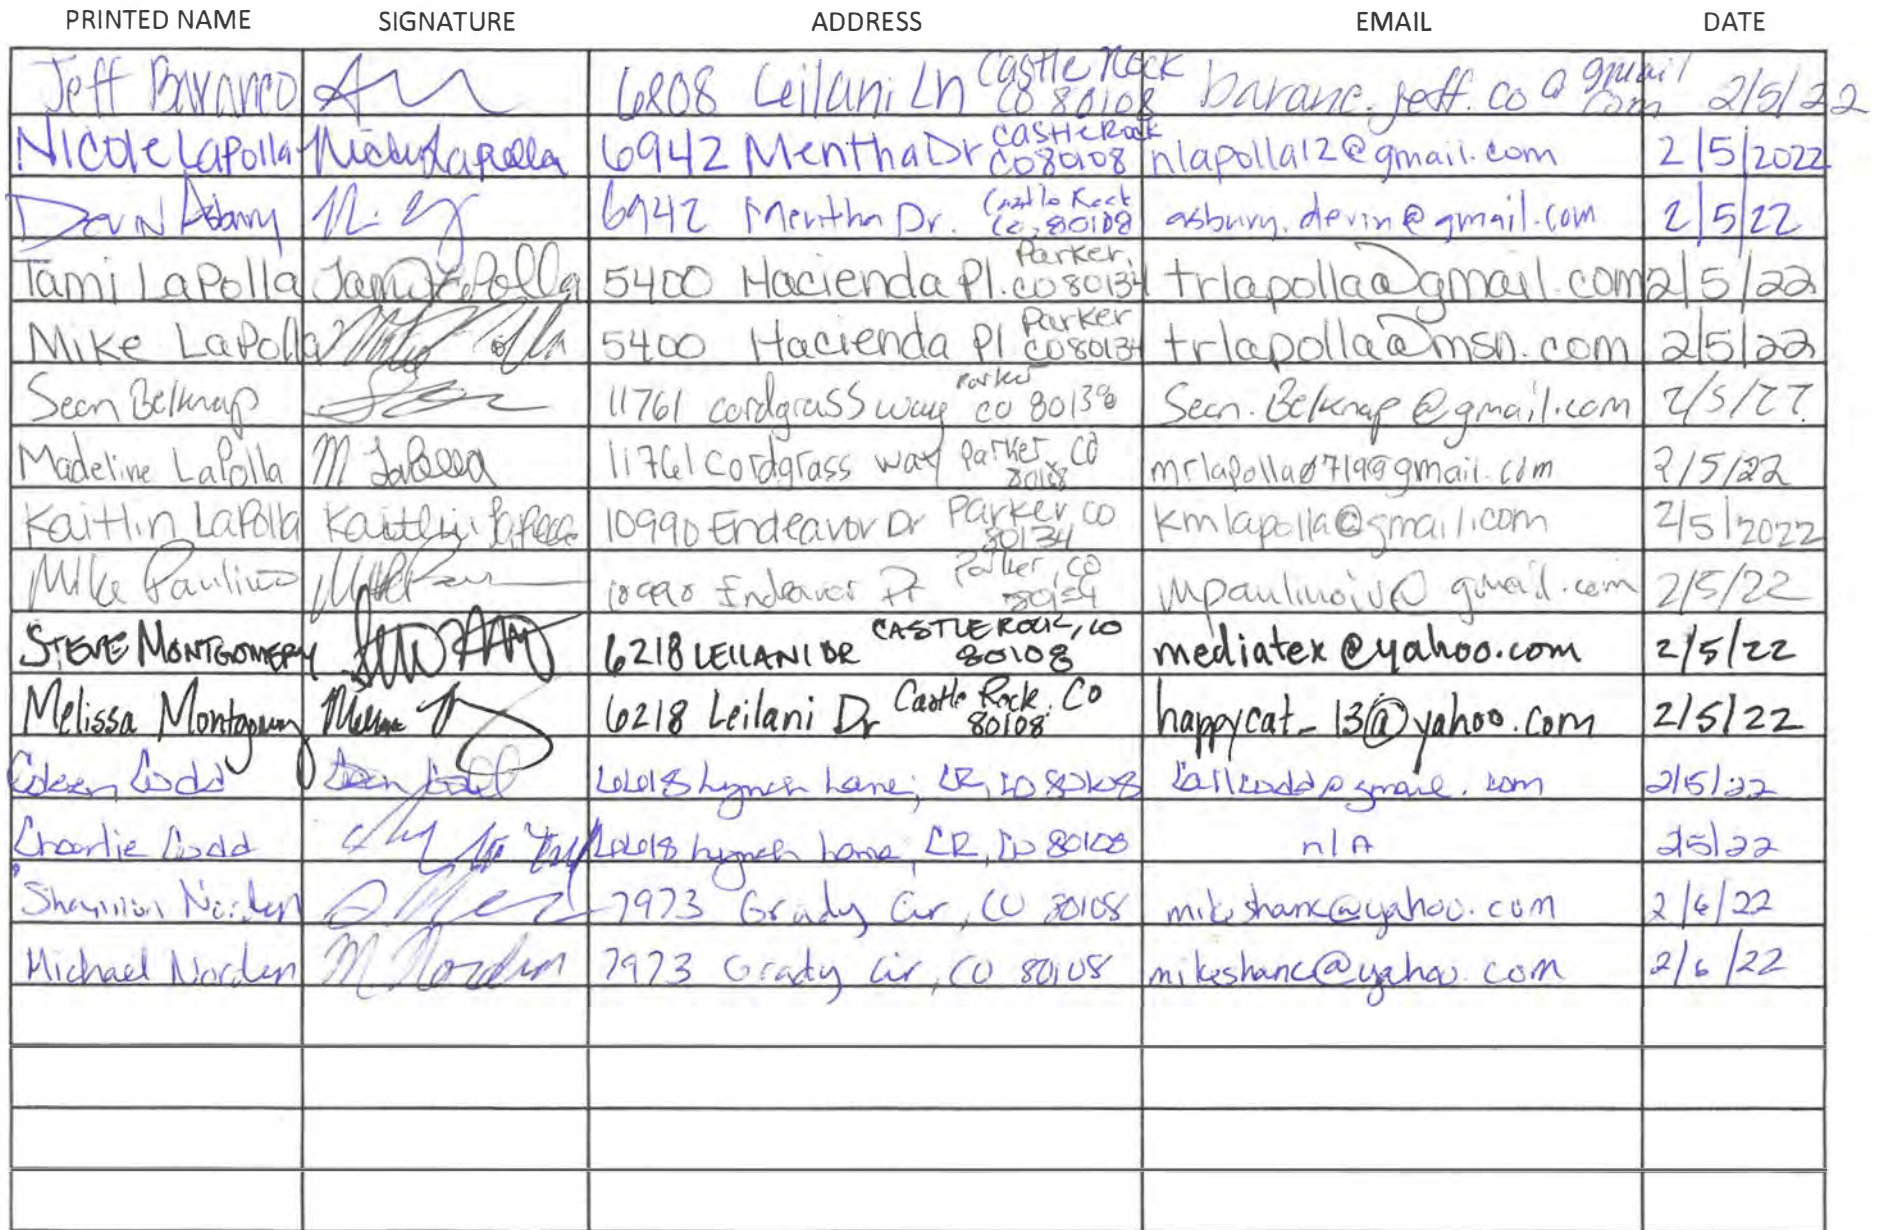 PRINTED NAME SIGNATURE ADDRESS EMAIL DATE
Jeff Baranco 6808 Leilani Ln Castle Rock CO 80108 baranc.jeff.co@gmail.com 2/5/22
Nicole LaPolla Nicole LaPolla 6942 Mentha Dr Castle Rock CO 80108 nlapolla12@gmail.com 2/5/2022
Devin Asbury 6942 Mentha Dr. Castle Rock CO, 80108 asbury.devin@gmail.com 2/5/22
Tami LaPolla Tami LaPolla 5400 Hacienda Pl. Parker, CO 80134 trlapolla@gmail.com 2/5/22
Mike LaPolla 5400 Hacienda Pl. Parker CO 80134 trlapolla@msn.com 2/5/22
Sean Belknap 11761 cordgrass way Parker CO 80138 Sean.Belknap@gmail.com 2/5/22
Madeline LaPolla M LaPolla 11761 Cordgrass way Parker, CO mrlapolla0719@gmail.com 2/5/22
Kaitlin LaPolla Kaitlin LaPolla 10990 Endeavor Dr Parker CO 80134 kmlapolla@gmail.com 2/5/2022
Mike Paulino 10990 Endeavor Parker, CO 80134 mpaulinoiv@gmail.com 2/5/22
STEVE MONTGOMERY 6218 LEILANI DR CASTLE ROCK, CO 80108 mediatex@yahoo.com 2/5/22
Melissa Montgomery 6218 Leilani Dr Castle Rock, CO 80108 happycat_13@yahoo.com 2/5/22
Coleen Codd Lane, CR, CO 80108 2/5/22
Charlie Codd Lane, CR, CO 80108 n/A 2/5/22
Shannon Norden 7973 Grady Cir, CO 80108 mikeshanc@yahoo.com 2/6/22
Michael Norden M Norden 7973 Grady Cir, CO 80108 mikeshanc@yahoo.com 2/6/22